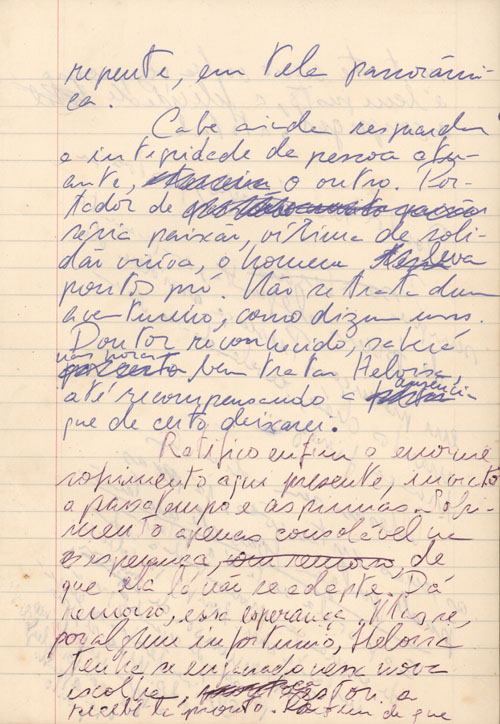 repente, em tela panorâmi-
ca.
Cabe ainda resguardar
a integridade da pessoa atu-
ante, o outro. Por-
tador de
séria paixão, vítima de soli-
dão viúva, o homem leva
pontos pró. Não se trata dum
aventureiro, como dizem uns.
Doutor reconhecido, saberá
bem tratar Heloisa,
até recompensando a ausência
que de certo deixarei.
Ratifico enfim o enorme
sofrimento aqui presente,
a passatempo e as Sofri-
mento apenas consolável na
esperança, sem remorso, de
que ela lá não se adapte. Dá
remorso, essa esperança. Mas se,
por algum infortúnio, Heloisa
tenha se enganado nessa nova
escolha, estou a
recebê-la pronto. a fim de que